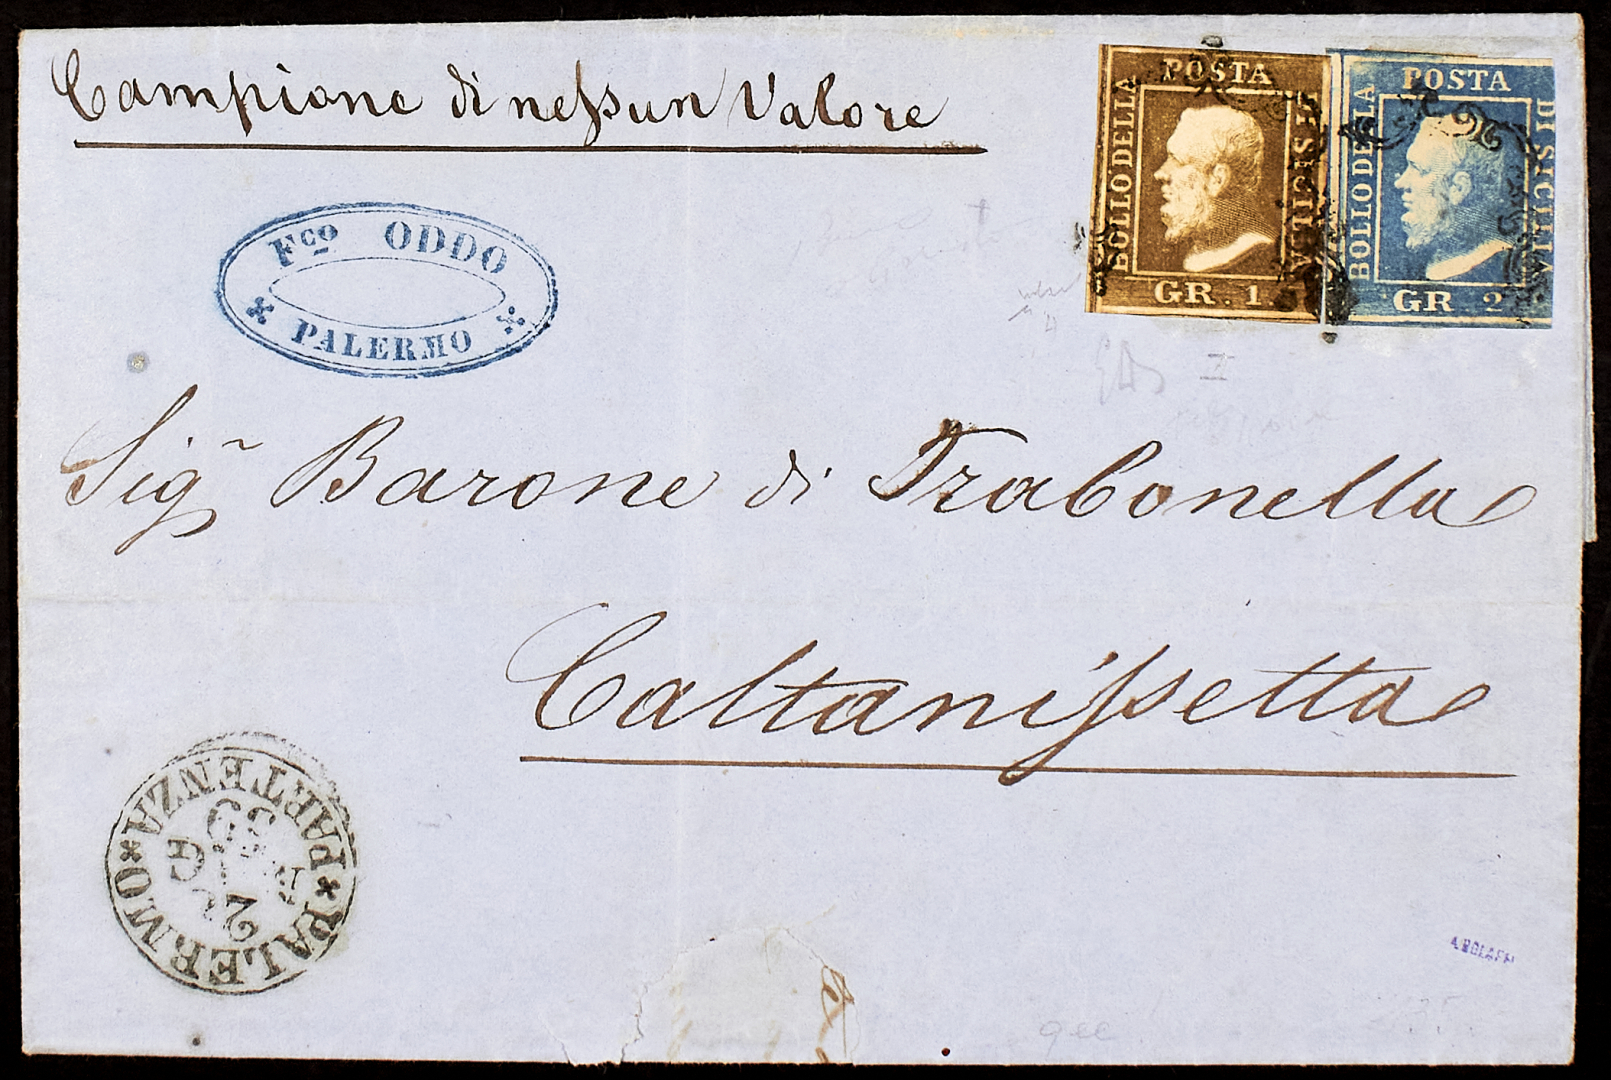 Campione di nessun Valore
POSTA
BOLLO DELLA
DI SICILIA
GR. 1.
POSTA
BOLLO DELLA
DI SICILIA
GR. 2
Fco ODDO
PALERMO
Sigr Barone di Trabonella
Caltanissetta
PALERMO
PARTENZA